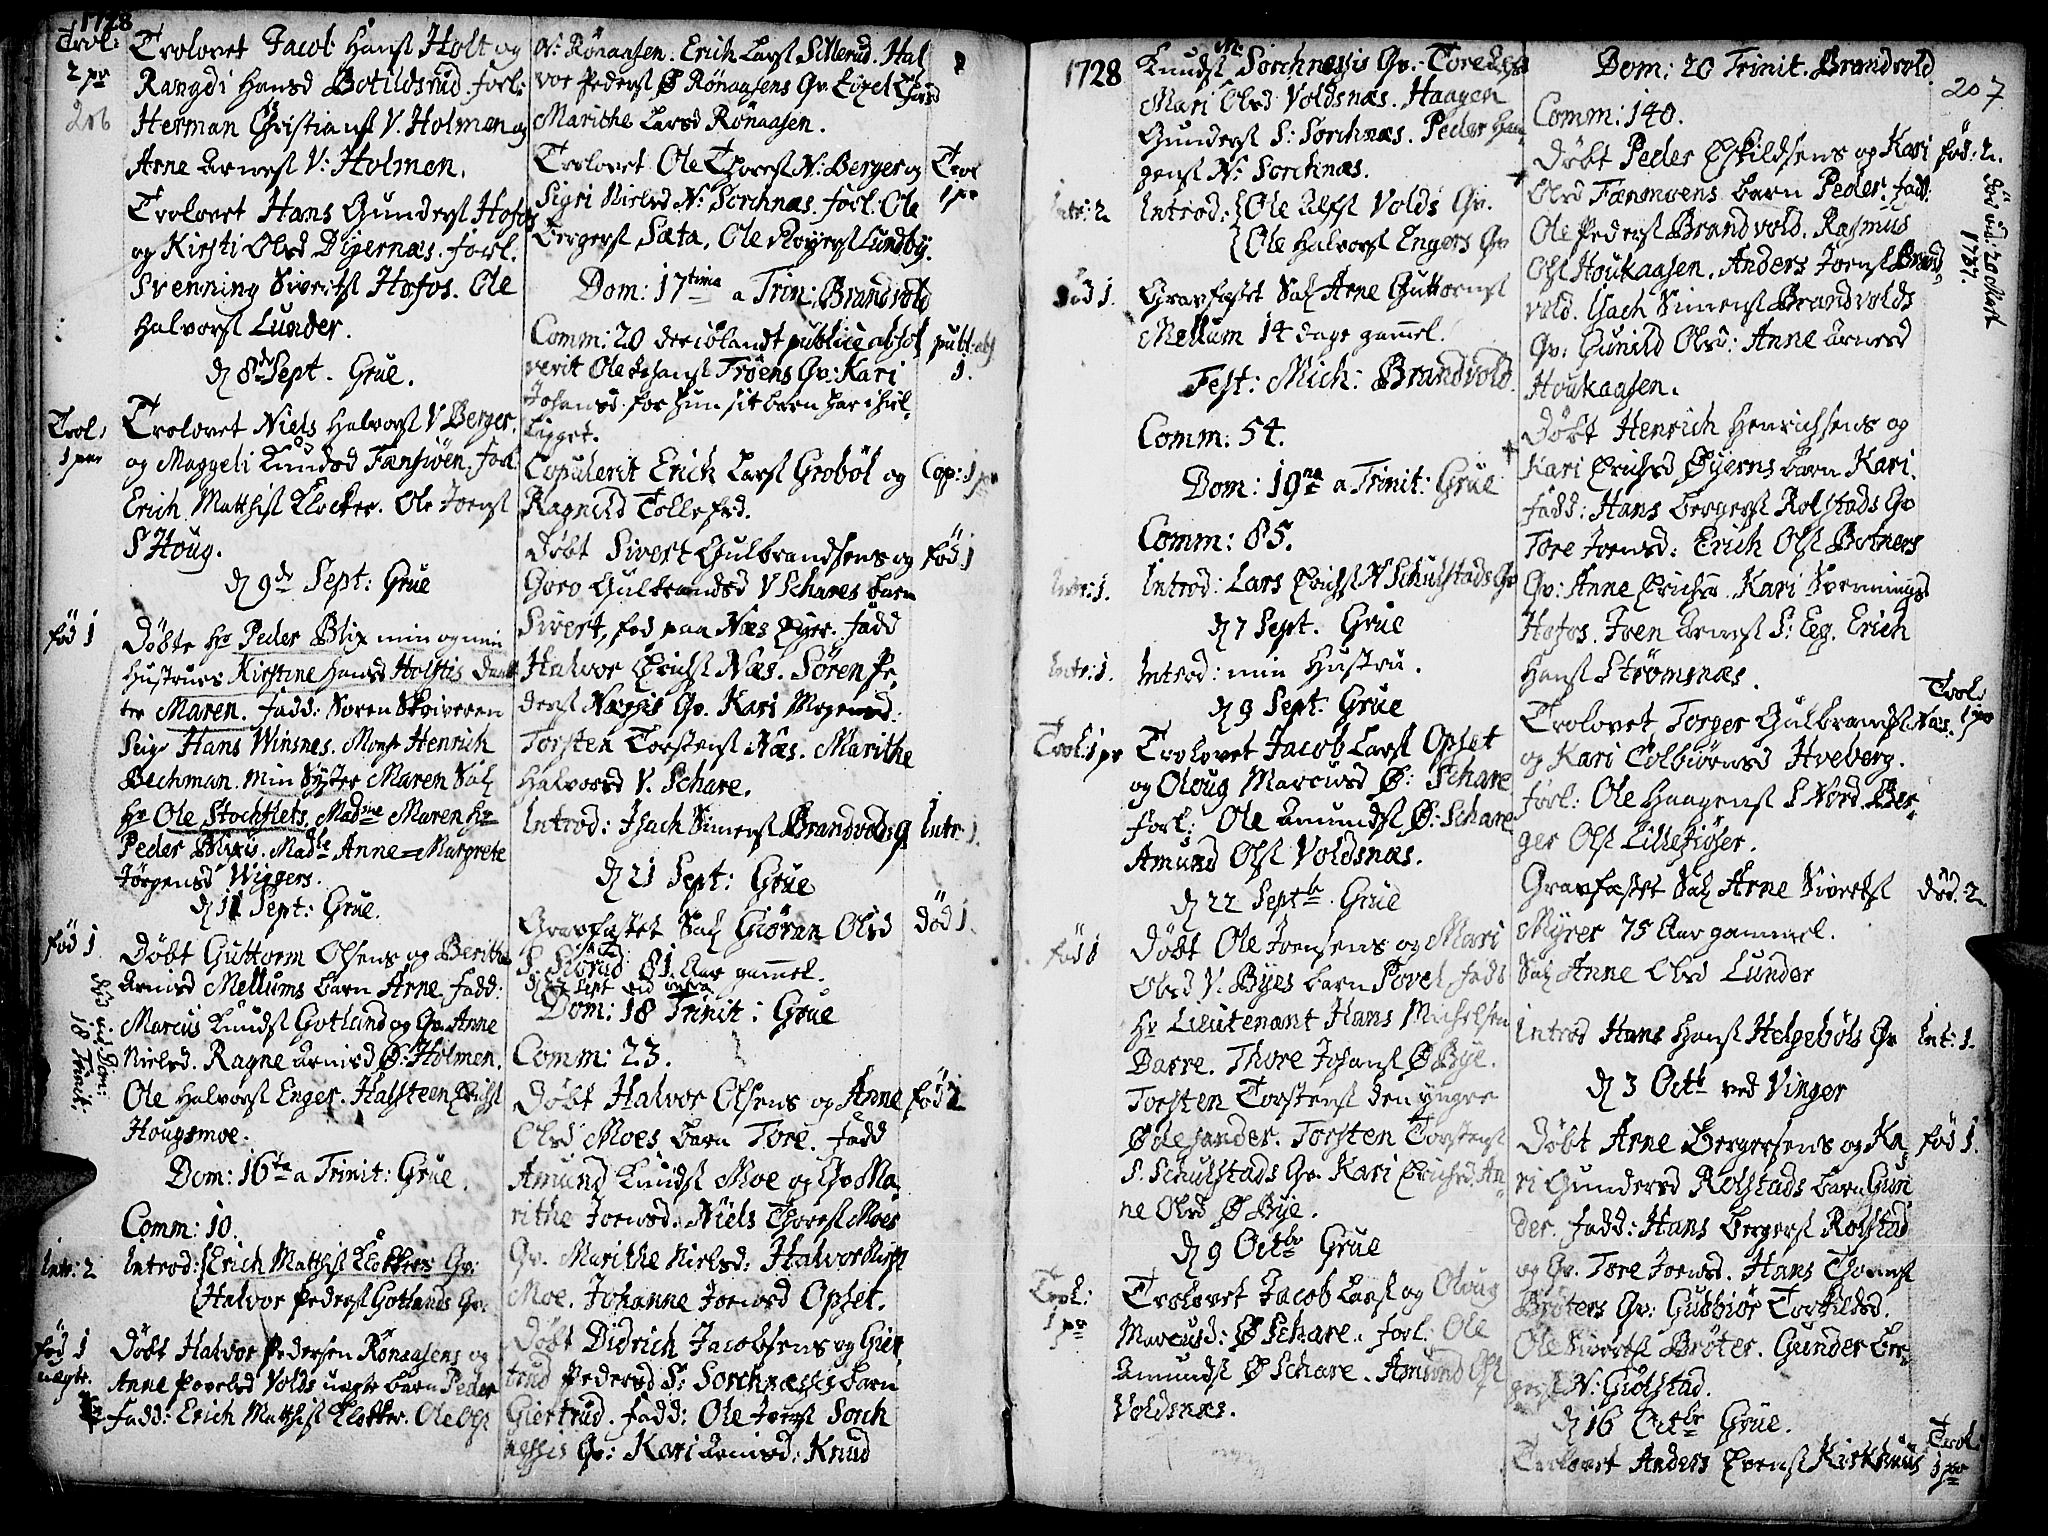 1728
Trol:
2 par
206
Trolovet Jacob Hansſ Holt og
Rangdi Hansd Botildsrud. forl:
Herman Christiansſ V. Holmen og
Arne Arnesſ V: Holmen.
Trolovet Hans Gundersſ Hofos
og Kirsti Olsd Digernæs. forl.
Svenning Sivertsſ Hofos. Ole
Halvorsſ Lunder.
d 8de Sept. Grue.
Trol:
1 par
Trolovet Niels Halvorsſ V Berger.
og Maggeli Knudsd Tansiöen. forl
Erich Matthisſ Klocker. Ole Joensſ
S Houg.
d 9de Sept: Grue
föd 1
Döbte Hr Peder Blix min og min
Hustrues Kirstine Hansd Holstis datt
ter Maren. Fadd: Soren Skriveren
Seigr Hans Winsnes. Monsr Henrich
Bechman. min Syster Maren Sal
Hr Ole Stochflets. Madme Maren Hr
Peder Blixis. Madle Anne=Margrete
Jörgensd Wiggers.
d 11 Sept: Grue.
föd 1
Döbt Guttorm Olsens og Berithe
Arnisd Mellums barn Arne. Fadd:
Marcus Knudsſ Gotland og Qv. Anne
Nielsd. Ragne Arnisd Ø: Holmen.
Ole Halvorsſ Enger. Halsteen Erichsſ
Hougsmoe.
död vid Dom:
18 Trinit.
Dom: 16ta a Trinit: Grue.
Comm: 10.
Intr: 2
Introd: Erich Matthisſ Klockers Qv:
Halvor Pedersſ Gotlands Qv.
föd 1
uægte.
Döbt Halvor Pedersen Rönaasens og
Anne Povelsd Volds uægte barn Peder
Fadd: Erich Matthisſ Klocker. Ole Olsſ
N: Rönaasen. Erich Larsſ Sillerud. Hal
vor Pedersſ Ø Rönaasens Qv. Lizel
Marithe Larsd Rönaasen.
Trolovet Ole Thoresſ N: Berger og
Sigri Nielsd N: Sorchnæs. forl: Ole
Bergersſ Sæta. Ole Lundby.
Trol
1 par
Dom: 17tima a Trin: Brandvold
Comm: 20 der iblandt publice absol
verit Ole Johansſ Tröens Qv: Kari
Johansd for hun sit barn har ihiel
ligget.
publ: abs
1.
Copulerit Erich Larsſ Groböl og
Ragnild Tollefsd.
Cop: 1 par
Döbt Sivert Gulbrandsens og
Goro Gulbrandsd V Schares barn
Sivert, föd paa Næs Eger. Fadd
Halvor Erichsſ Næs. Sören Pe
dersſ Næssis Qv. Kari Mogensd.
Torsten Torstensſ Næs. Marithe
Halvorsd V. Schare.
föd 1
Introd: Isach Simensſ Brandvolds Q
Intr: 1.
d 21 Sept: Grue
Gravfæstet Sal Giöran Olsd
S. 81 Aar gammel.
död 1.
Dom: 18 Trinit: Grue
Comm: 23.
Döbt Halvor Olsens og Anne
Olsd Moes barn Tore. Fadd
Amund Knudsſ Moe og Qv. Ma
rithe Joensd. Niels Thoresſ Moes
Qv. Marithe Nielsd: Halvor Nielsſ
Moe. Johanne Joensd Opset.
föd 2
Döbt Didrich Jacobsens og Gier
trud Pedersd S: Sorchnæssis barn
Giertrud. Fadd: Ole Joensſ Sorch
næssis Qv: Kari Arnisd: Knud
1728
Knudsſ N: Sorchnæssis Qv: Tore
Mari Olsd Voldsnæs. Haagen
Gundersſ S: Sorchnæs. Peder Haa
gensſ N: Sorchnæs.
Intr: 2
Introd: Ole Alfsſ Volds Qv.
Ole Halvorsſ Engers Qv
död 1.
Gravfæstet Sal Arne Guttormsſ
Mellum 14 dage gamel.
Fest: Mich: Brandvold.
Comm: 54.
Dom: 19na a Trinit: Grue
Comm: 85.
Intr: 1.
Introd: Lars Erichsſ N Schulstads Qv
d 7 Sept. Grue
Intr: 1.
Introd: min Hustru.
d 9 Sept. Grue
Trol: 1 par
Trolovet Jacob Larsſ Opset
og Oloug Marcusd Ø: Schare
forl: Ole Amundsſ Ø: Schare
Amund Olsſ Voldsnæs.
d 22 Septbr Grue
föd 1
Döbt Ole Joensens og Mari
Olsd V: Byes barn Povel. Fadd
Hr Lieutenant Hans Michelsen
Darre. Thore Johansſ Ø Bye.
Torsten Torstensſ den yngre
Ødesander. Torsten Torstensſ
S. Schulstads Qv. Kari Erichsd. An
ne Olsd Ø Bye.
d 9 Octbr Grue
Trol:
1 par
Trolovet Jacob Larsſ og Oloug
Marcusd: Ø Schare. forl: Ole
Amundsſ Ø Schare. Amund Olsſ
Voldsnæs.
Dom: 20 Trinit. Brandvold.
207
Comm: 140.
Döbt Peder Eskildsens og Kari
Olsd Tanmoens barn Peder. Fadd:
Ole Pedersſ Brandvold. Rasmus
Olsſ Houkaasen. Anders Joensſ Brand
vold. Isach Simensſ Brandvolds
Qv: Gunild Olsd: Anne Arnesd
Houkaasen.
föd: 2.
död vid: 20 Mart
1787.
Döbt Henrich Henrichsens og
Kari Erichsd Øyerns barn Kari
Fadd: Hans Bergersſ Rolstads Qv
Tore Joensd: Erich Olsſ Botners
Qv: Anne Erichsd. Kari Svennings
Hofos. Joen Arnesſ S: Eeg. Erich
Hansſ Strömsnæs.
Trolovet Torger Gulbrandsſ Næs.
og Kari Colbiörnsd Hveberg.
forl: Ole Haagensſ S Nord. Ber
ger Olsſ Lillesiöser.
Trol:
1 par
Gravfæstet Sal Arne Sivertsſ
Myrer 75 Aar gammel.
Sal Anne Olsd Lunder
död. 2
Introd Hans Hansſ Helgebóls Qv
Int: 1.
d 3 Octb ved Vinger
Döbt Arne Bergersens og Ka
ri Gundersd Rolstads barn Gun
der. Fadd: Hans Bergersſ Rolstad
og Qv. Tore Joensd. Hans Thomsſ
Bröters Qv: Gubbiör Torkildsd.
Ole Sivertsſ Bröter. Gunder Ber
gersſ N: Giölstad.
föd 1.
d 16 Octbr Grue.
Trolovet Anders Evensſ Kirkhuus
Trol
1 par